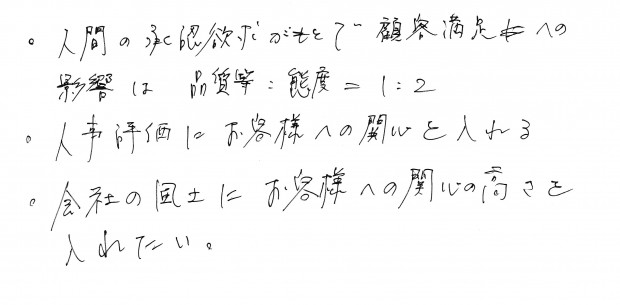 ・人間の承認欲求がもとで顧客満足度への
影響は 品質等:態度=1:2
・人事評価にお客様への関心を入れる
・会社の風土にお客様への関心の高さを
入れたい。